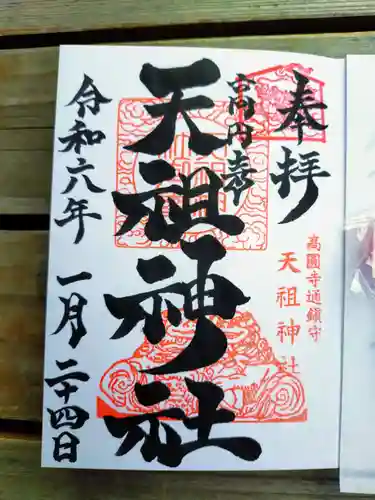 奉拝
高円寺
天祖神社
高圓寺通鎮守
天祖神社
令和六年 一月二十四日